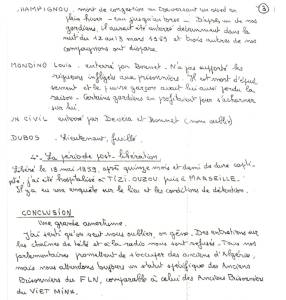 CHAMPIGNOU, mort de congestion en traversant un oued en
plein hiver - eau jusqu'au torse - D'après un de nos
gardiens, il aurait été enterré débroument dans la
nuit du 12 au 13 mars 1959 et trois autres de nos
compagnons ont disparu.
MONDINO Louis. enterré par Bonnet. N'a pas supporté les
rigueurs infligés aux prisonniers. Il est mort d'épui
sement et le pauvre garçon avant lui aussi perdu la
raison - Certains gardiens en profitaient pour s'acharner
sur lui.
UN CIVIL enterré par Devers et Bonnet (nom oublié)
DUBOS - Lieutenant, fusillé.
4 - La période post-libération.
Libéré le 18 mai 1959, après quinze mois et demi de dure capti-
vité, j'ai été hospitalisé à TIZI-OUZOU puis à MARSEILLE.
Il y a eu une enquête sur le lieu et les conditions de détention.
CONCLUSION
Une grande amertume.
J'ai senti qu'on veut nous oublier, on gêne. Des entretiens sur
les chaînes de télé et à la radio nous sont refusés. Tous nos
parlementaires promettent de s'occuper des anciens d'Algérie,
mais nous attendons toujours un statut spécifique des Anciens
Prisonniers du FLN, comparable à celui des Anciens Prisonniers
du VIET MINH.
3